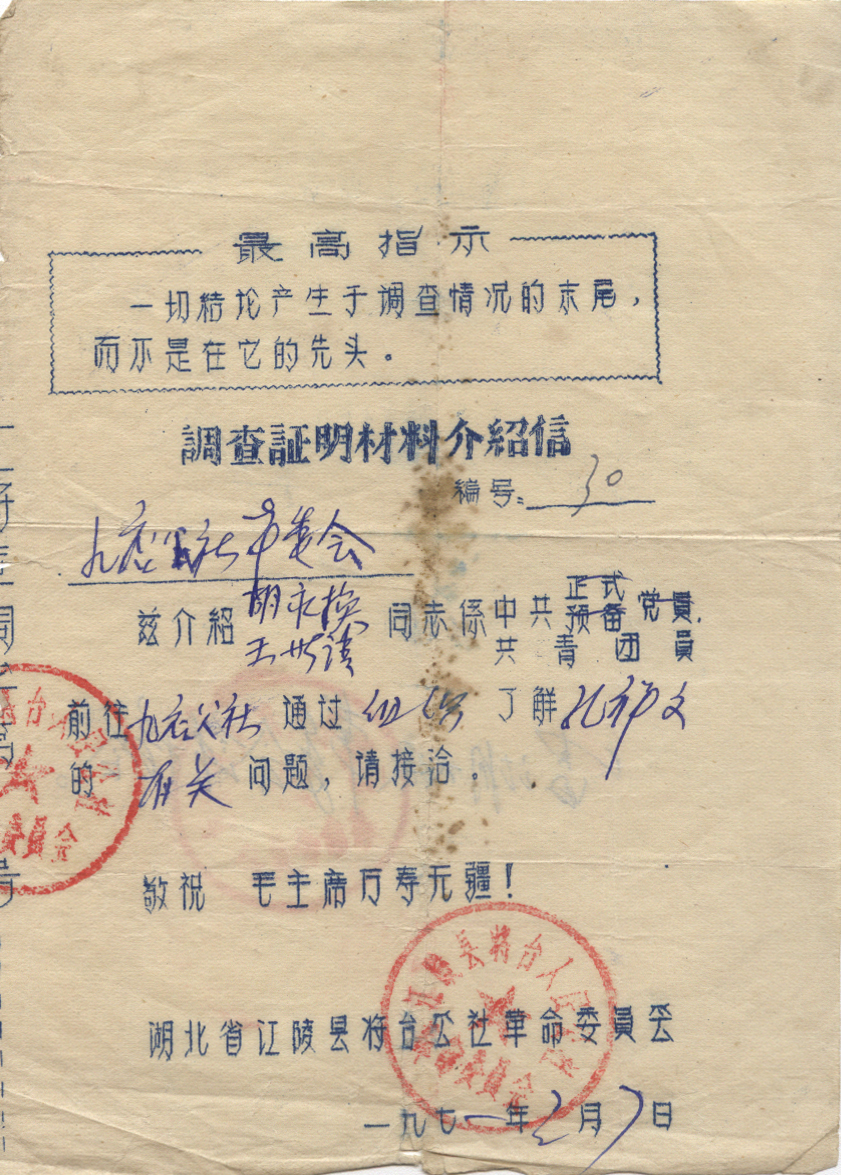 最高指示
一切结论产生于调查情况的末尾，
而不是在它的先头。
調查証明材料介紹信
编号：30
九店公社革委会
兹介紹 胡永换 王世清 同志係中共 正式 预备 党員，
共青团員
前往九店公社通过组织了解孔祥文
的有关问题，请接洽。
敬祝 毛主席万寿无疆！
湖北省江陵县将台公社革命委員会
一九七一年2月7日
江陵县将台人民公社
革命委員会